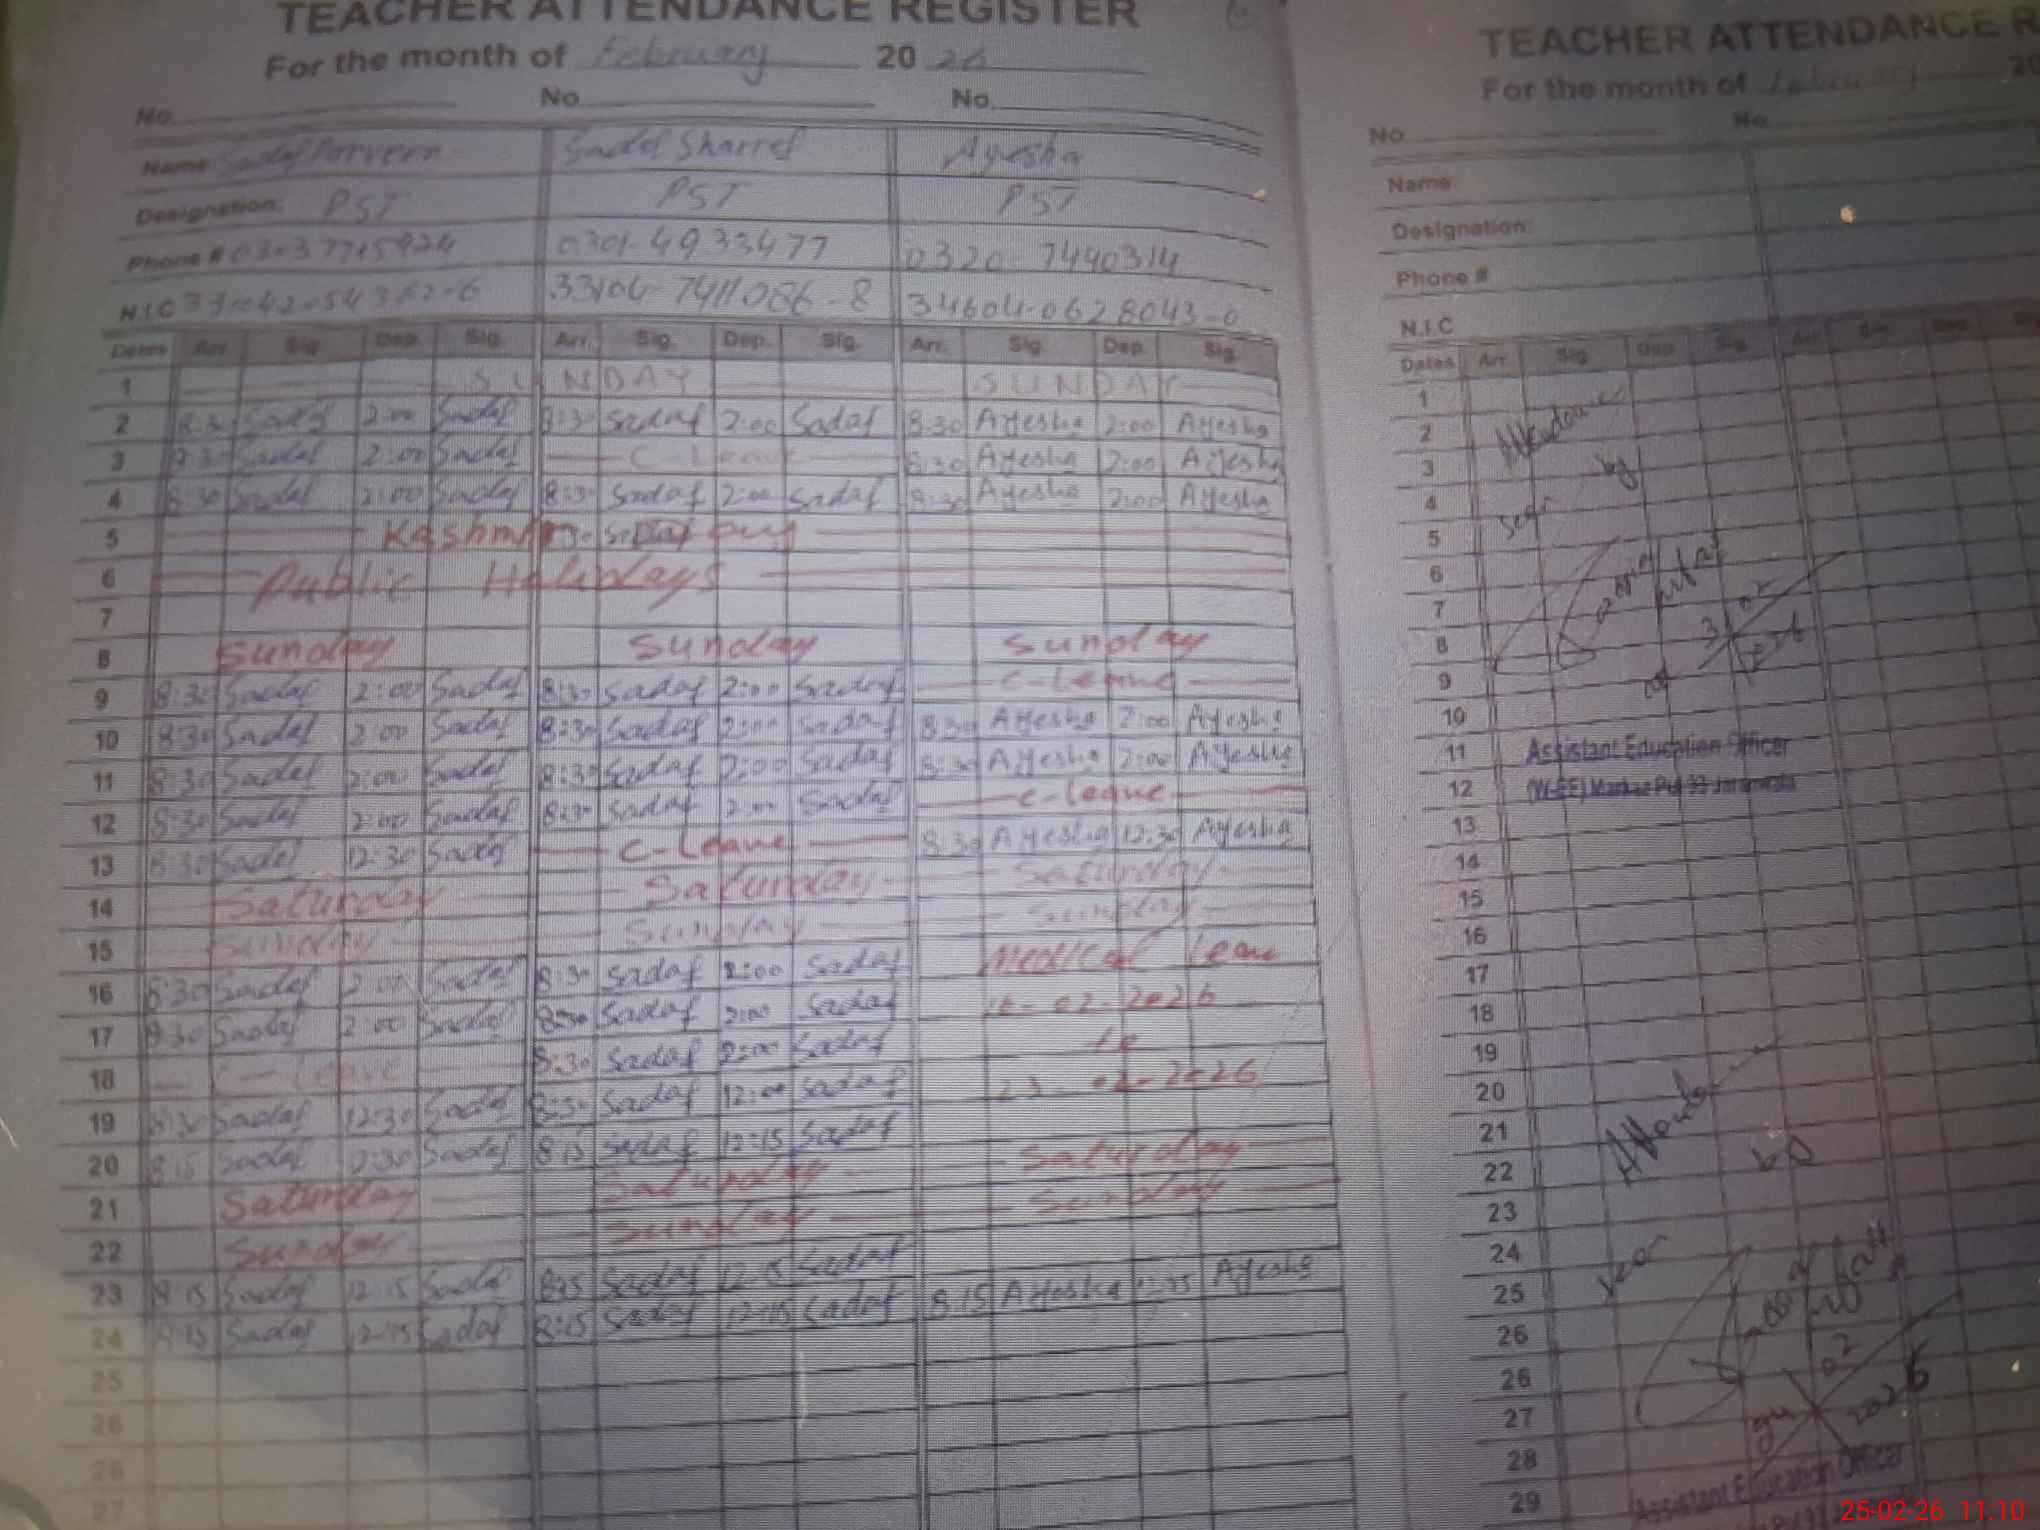 TEACHER ATTENDANCE REGISTER
For the month of February 2026
No. No. No.
Name Sadaf Parveen Sadaf Sharref Ayesha
Designation: PST PST PST
Phone # 03037715924 0301-4933477 0320-7440314
N.I.C 33104-7411086-8 34604-0628043-0
Dates Arr. Sig. Dep. Sig. Arr. Sig. Dep. Sig. Arr. Sig. Dep. Sig.
1 SUNDAY SUNDAY
2 8:30 Sadaf 2:00 Sadaf 8:30 Sadaf 2:00 Sadaf 8:30 Ayesha 2:00 Ayesha
3 8:30 Sadaf 2:00 Sadaf C-Leave 8:30 Ayesha 2:00 Ayesha
4 8:30 Sadaf 2:00 Sadaf 8:30 Sadaf 2:00 Sadaf 8:30 Ayesha 2:00 Ayesha
5 Kashmir Day
6 Public Holidays
7
8 Sunday Sunday Sunday
9 8:30 Sadaf 2:00 Sadaf 8:30 Sadaf 2:00 Sadaf C-Leave
10 8:30 Sadaf 2:00 Sadaf 8:30 Sadaf 2:00 Sadaf 8:30 Ayesha 2:00 Ayesha
11 8:30 Sadaf 2:00 Sadaf 8:30 Sadaf 2:00 Sadaf 8:30 Ayesha 2:00 Ayesha
12 8:30 Sadaf 2:00 Sadaf 8:30 Sadaf 2:00 Sadaf C-Leave
13 8:30 Sadaf 12:30 Sadaf C-Leave 8:30 Ayesha 12:30 Ayesha
14 Saturday Saturday Saturday
15 Sunday Sunday Sunday
16 8:30 Sadaf 2:00 Sadaf 8:30 Sadaf 2:00 Sadaf Medical Leave
17 8:30 Sadaf 2:00 Sadaf 8:30 Sadaf 2:00 Sadaf 16-02-2026
18 C-Leave 8:30 Sadaf 2:00 Sadaf to
19 8:30 Sadaf 12:30 Sadaf 8:30 Sadaf 12:00 Sadaf 23-02-2026
20 8:15 Sadaf 12:30 Sadaf 8:15 Sadaf 12:15 Sadaf
21 Saturday Saturday Saturday
22 Sunday Sunday Sunday
23 8:15 Sadaf 12:15 Sadaf 8:15 Sadaf 12:15 Sadaf
24 8:15 Sadaf 12:15 Sadaf 8:15 Sadaf 12:15 Sadaf 8:15 Ayesha 12:15 Ayesha
25
26
26
27
TEACHER ATTENDANCE R
For the month of February 20
No No
Name:
Designation:
Phone #
N.I.C
Dates Arr. Sig. Dep. Sig. Arr. Sig. Dep.
1
2 Attendance
3 by
4 Seen
5
6
7
8
9
10
11 Assistant Education Officer
12
13
14
15
16
17
18
19
20
21
22
23
24
25
26
26
27
28
29 Assistant Education Officer
25-02-26 11:10